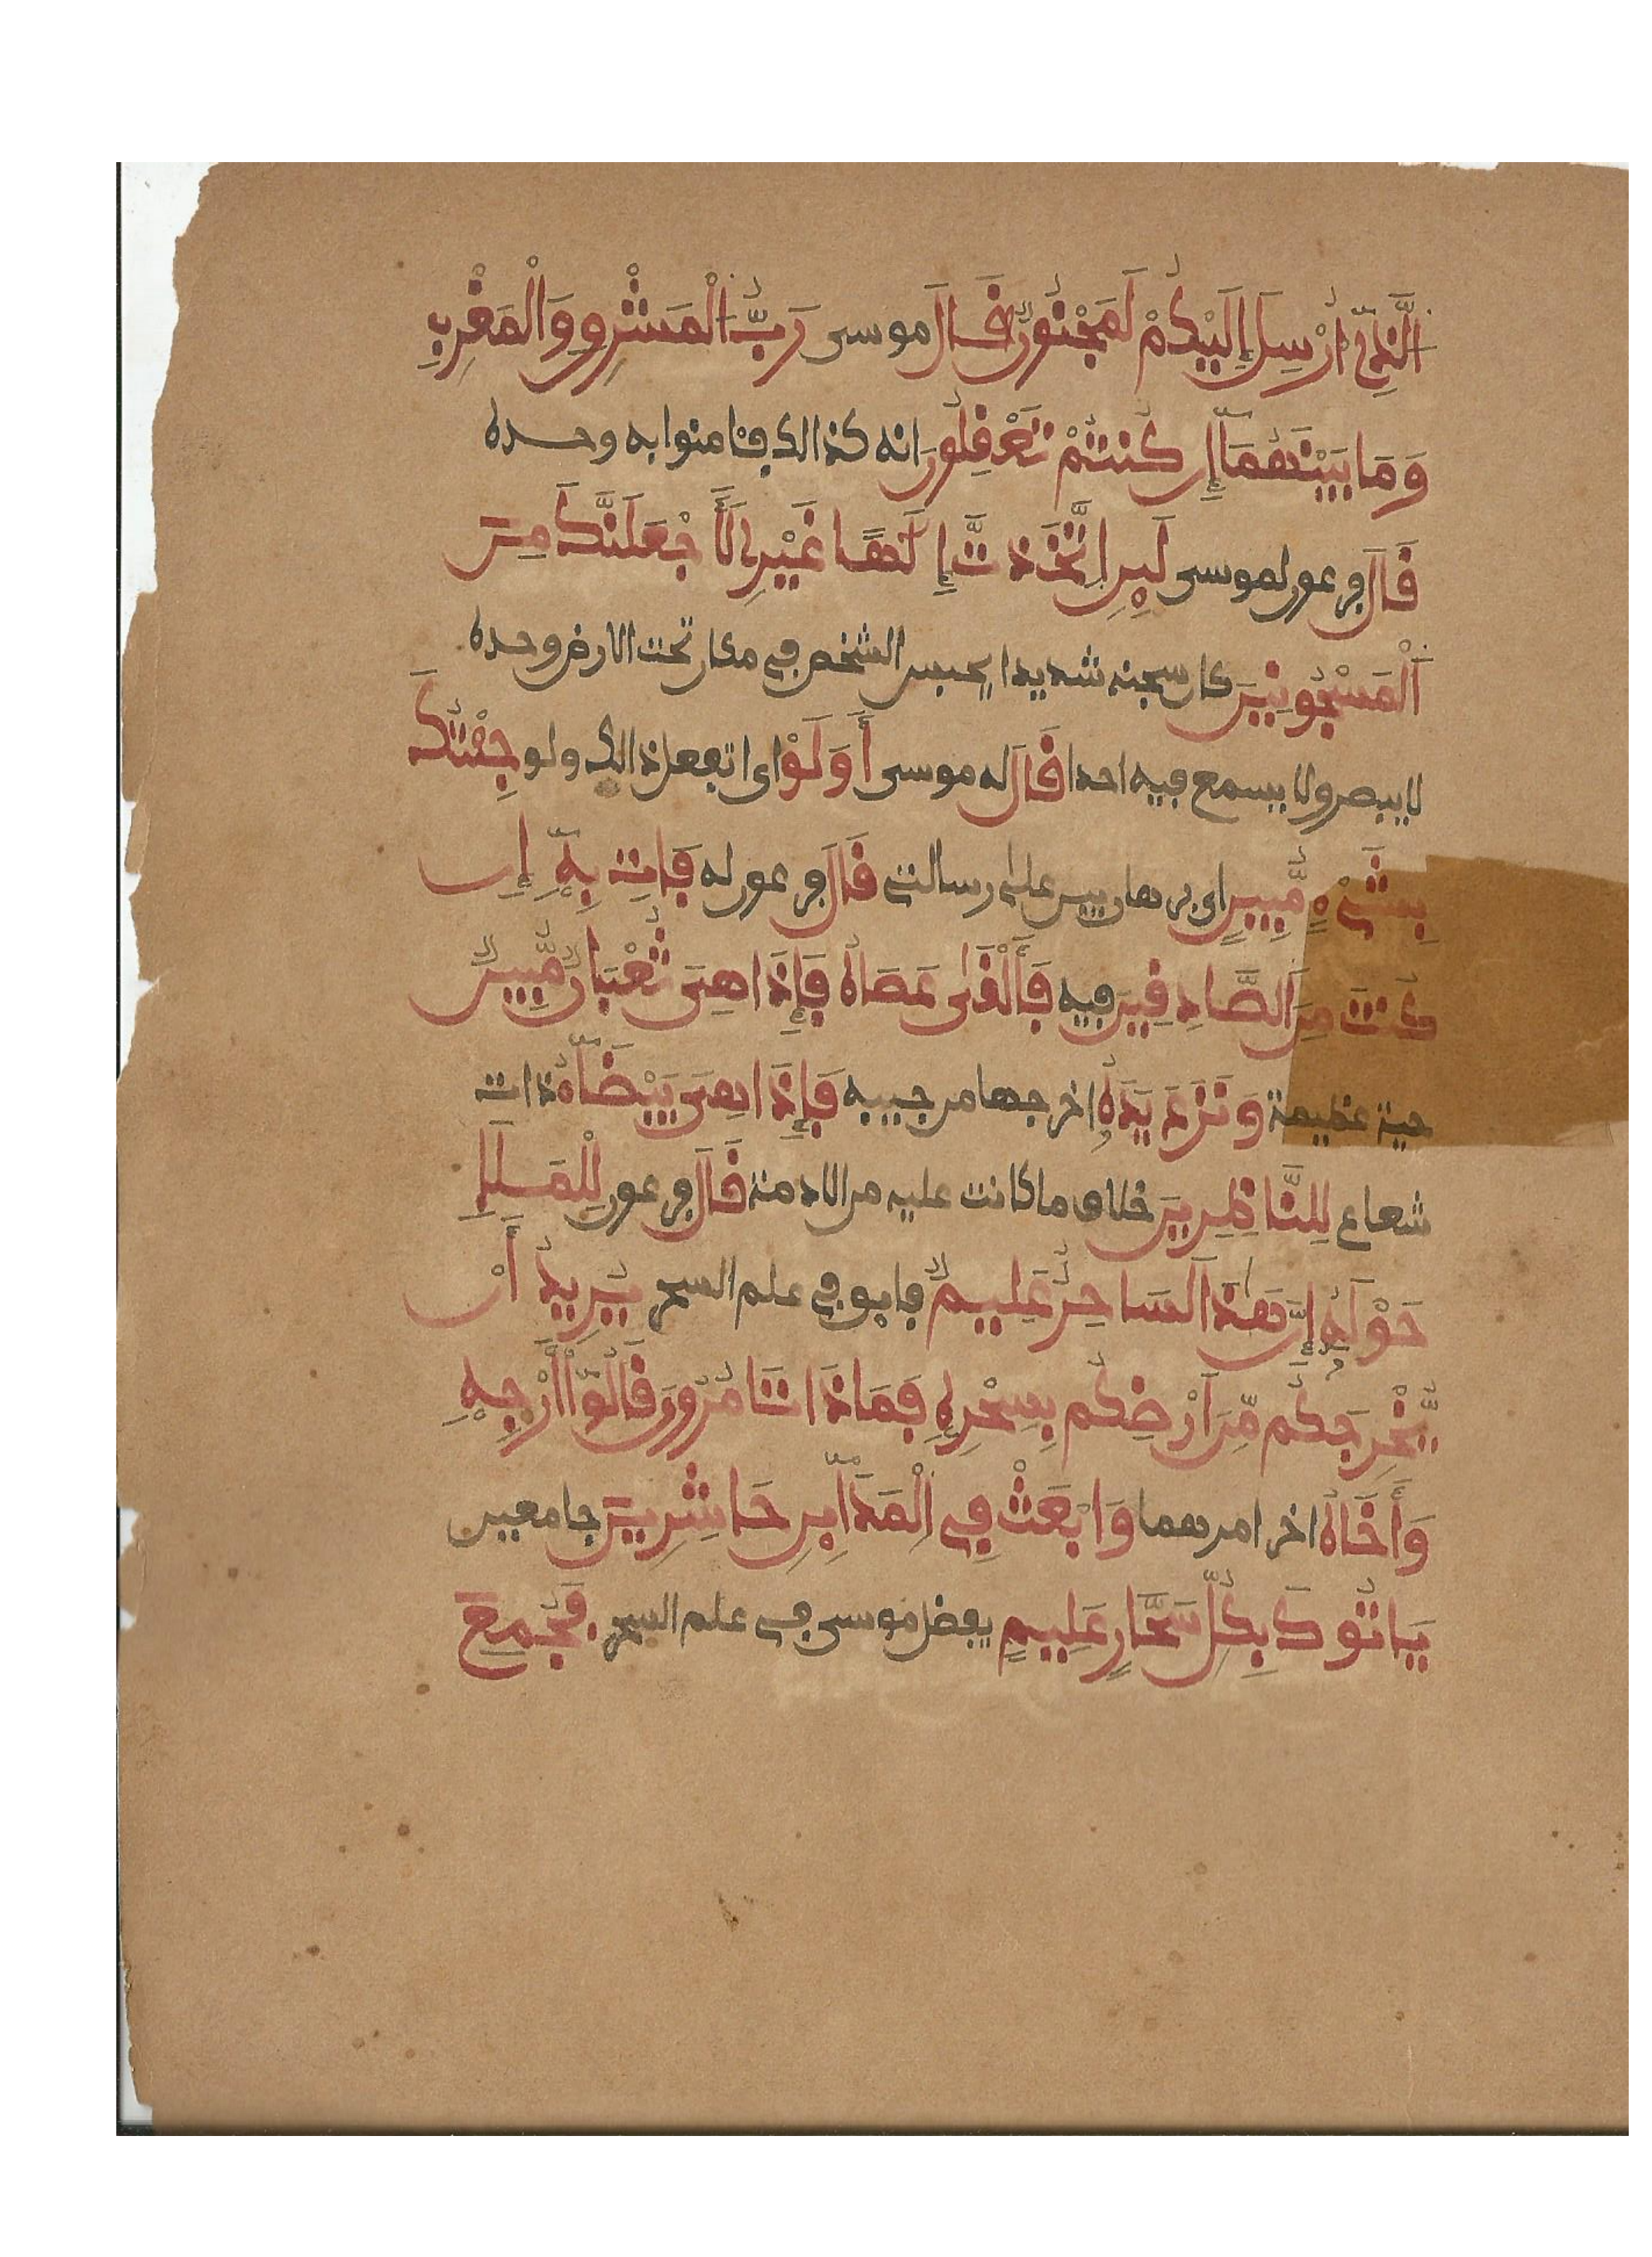 الَّذِي أُرْسِلَ إِلَيْكُمْ لَمَجْنُونٌ قَالَ موسى رَبُّ الْمَشْرِقِ وَالْمَغْرِبِ
وَمَا بَيْنَهُمَا إِن كُنتُمْ تَعْقِلُونَ انه كذالك فئامنوا به وحده
قَالَ فرعون لموسى لَئِنِ اتَّخَذتَّ إِلَٰهًا غَيْرِي لَأَجْعَلَنَّكَ مِنَ
الْمَسْجُونِينَ كان سجنه شديدا يحبس الشخص في مكان تحت الارض وحده
لا يبصر ولا يسمع فيه احدا قَالَ له موسى أَوَلَوْ اى اتفعل ذالك ولو جِئْتُكَ
بِشَيْءٍ مُّبِينٍ اى برهان بين على رسالتى قَالَ فرعون له فَاتِ بِهِ إِن
كُنتَ مِنَ الصَّادِقِينَ فيه فَأَلْقَىٰ عَصَاهُ فَإِذَا هِيَ ثُعْبَانٌ مُّبِينٌ
حية عظيمة وَنَزَعَ يَدَهُ اخرجها من جيبه فَإِذَا هِيَ بَيْضَاءُ ذات
شعاع لِلنَّاظِرِينَ خلاف ما كانت عليه من الادمة قَالَ فرعون لِلْمَلَإِ
حَوْلَهُ إِنَّ هَٰذَا لَسَاحِرٌ عَلِيمٌ فايق في علم السحر يُرِيدُ أَنْ
يُّخْرِجَكُم مِّنَ ارْضِكُم بِسِحْرِهِ فَمَاذَا تَامُرُونَ قَالُوا أَرْجِهِ
وَأَخَاهُ اخر امرهما وَابْعَثْ فِي الْمَدَائِنِ حَاشِرِينَ جامعين
يَاتُوكَ بِكُلِّ سَحَّارٍ عَلِيمٍ يفضل موسى في علم السحر فَجُمِعَ